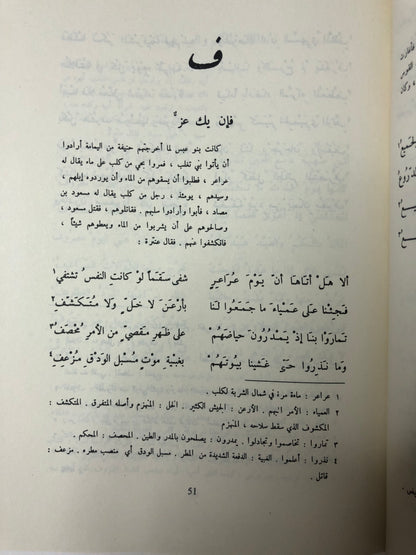 ف
فإن يك عز
كانت بنو عبس لما أخرجتهم حنيفة من اليمامة أرادوا
أن يأتوا بني تغلب ، فمروا بحي من كلب على ماء يقال له
عراعر ، فطلبوا أن يسقوهم من الماء وأن يوردوه إبلهم ،
وسيدهم ، يومئذ ، رجل من كلب يقال له مسعود بن
مصاد ، فأبوا وأرادوا سلبهم . فقاتلوهم ، فقتل مسعود ،
وصالحوهم على أن يشربوا من الماء ويعطوهم شيئاً ،
فانكشفوا عنهم . فقال عنترة :
ألا هلْ أتاها أنّ يَوْمَ عُرَاعِرٍ شفى سَقَماً لوْ كانتِ النفسُ تشتفي ١
فجئْنا على عَمْياءَ ما جمَعُوا لنا بأرْعَنَ لا خَلٍّ وَلا مُتَكَشِّفِ ٢
تمارَوْا بنا إذ يَمْدُرُونَ حياضَهمْ على ظهرِ مَقضيٍّ من الأمرِ مُحْصَفِ ٣
وما نَذِرُوا حتّى غَشينا بيوتَهمْ بغَبيةِ مَوْتٍ مُسْبلِ الوَدْقِ مُزْعِفِ ٤
١ عراعر : ماءة مرة في شمال الشربة لكلب .
٢ العمياء : الأمر المبهم . الأرعن : الجيش الكثير . الخل : المنهزم وأصله المتفرق . المتكشف :
المكشوف الذي سقط سلاحه ، المنهزم
٣ تماروا : تخاصموا وتجادلوا . يمدرون : يصلحون بالمدر والطين . المحصف : المحكم .
٤ نذروا : أعلموا . الغبية : الدفعة الشديدة من المطر . مسبل الودق أي منصب مطره . مزعف :
قاتل .
51